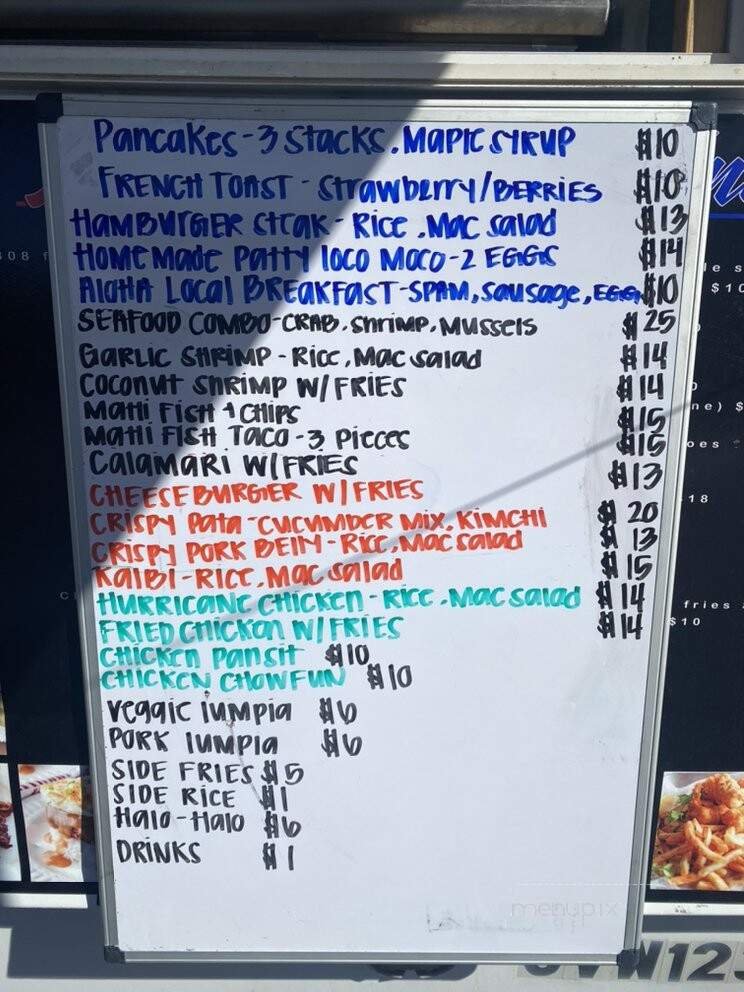 PANCAKES - 3 STACKS. MAPLE SYRUP $10
FRENCH TOAST - STRAWBERRY/BERRIES $10
HAMBURGER STEAK - RICE. MAC SALAD $13
HOMEMADE PATTY LOCO MOCO - 2 EGGS $14
ALOHA LOCAL BREAKFAST - SPAM, SAUSAGE, EGG $10
SEAFOOD COMBO - CRAB, SHRIMP, MUSSELS $25
GARLIC SHRIMP - RICE, MAC SALAD $14
COCONUT SHRIMP W/ FRIES $14
MAHI FISH & CHIPS $15
MAHI FISH TACO - 3 PIECES $15
CALAMARI W/ FRIES $13
CHEESEBURGER W/ FRIES
CRISPY PATA - CUCUMBER MIX, KIMCHI $20
CRISPY PORK BELLY - RICE, MAC SALAD $13
KALBI - RICE, MAC SALAD $15
HURRICANE CHICKEN - RICE. MAC SALAD $14
FRIED CHICKEN W/ FRIES $14
CHICKEN PANSIT $10
CHICKEN CHOWFUN $10
VEGGIE LUMPIA $6
PORK LUMPIA $6
SIDE FRIES $5
SIDE RICE $1
HALO-HALO $6
DRINKS $1
menupix
808 f
le s
$10
ne) $
oes
18
fries
$10
VW123